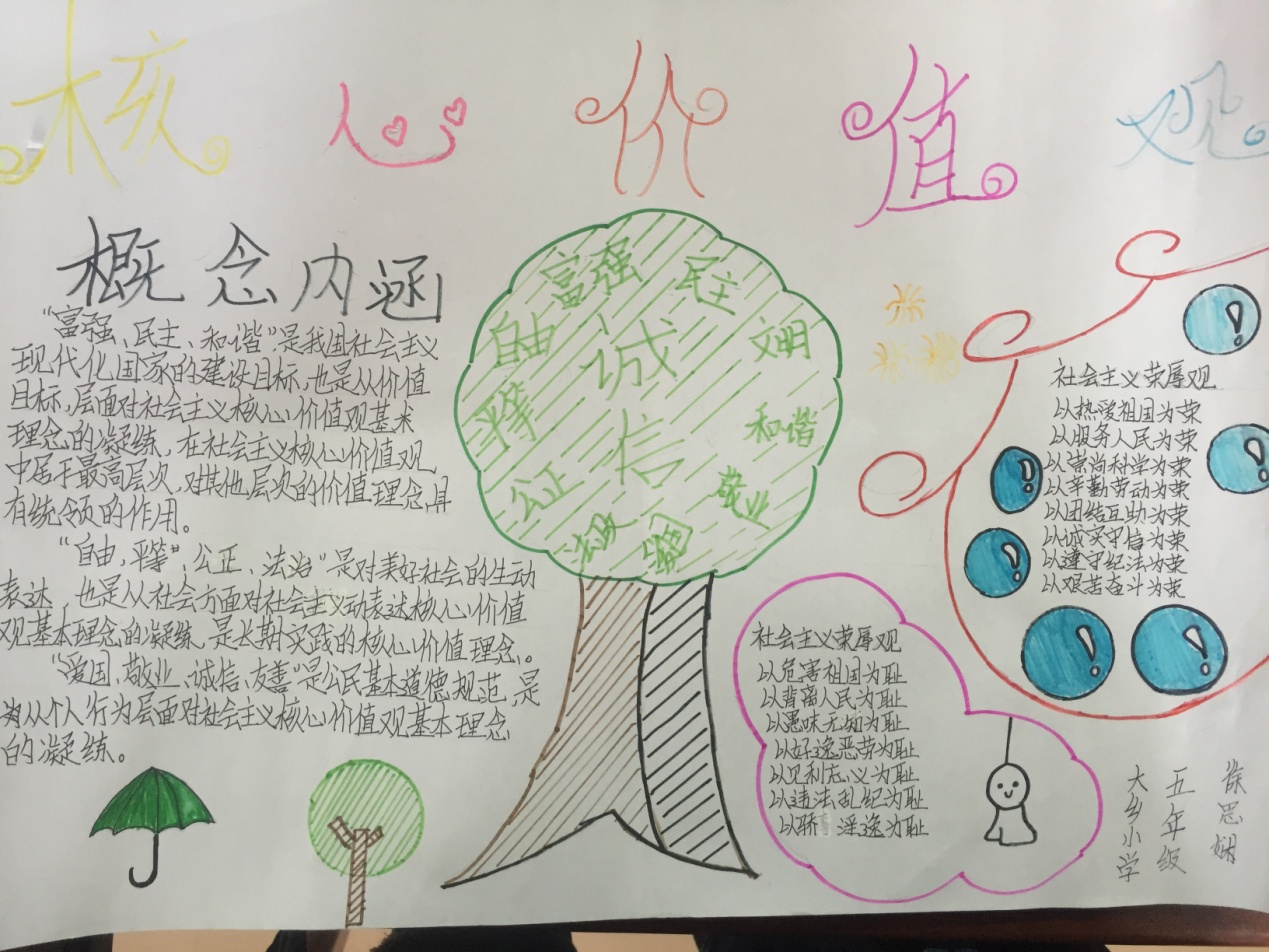 核心价值观
概念内涵
“富强、民主、和谐”是我国社会主义
现代化国家的建设目标,也是从价值
目标,层面对社会主义核心价值观基本
理念的凝练,在社会主义核心价值观
中居于最高层次,对其他层次的价值理念具
有统领的作用。
“自由,平等”,公正、法治”是对美好社会的生动
表达,也是从社会方面对社会主义动表达核心价值
观基本理念的凝练、是长期实践的核心价值理念。
“爱国、敬业、诚信、友善”是公民基本道德规范,是
从个人行为层面对社会主义核心价值观基本理念
的凝练。
富强
民主
自由
诚信
文明
平等
和谐
公正
敬业
法治
爱国
社会主义荣辱观
以热爱祖国为荣
以服务人民为荣
以崇尚科学为荣
以辛勤劳动为荣
以团结互助为荣
以诚实守信为荣
以遵守纪法为荣
以艰苦奋斗为荣
社会主义荣辱观
以危害祖国为耻
以背离人民为耻
以愚昧无知为耻
以好逸恶劳为耻
以见利忘义为耻
以违法乱纪为耻
以骄 淫逸为耻
大乡小学
五年级
徐思娴